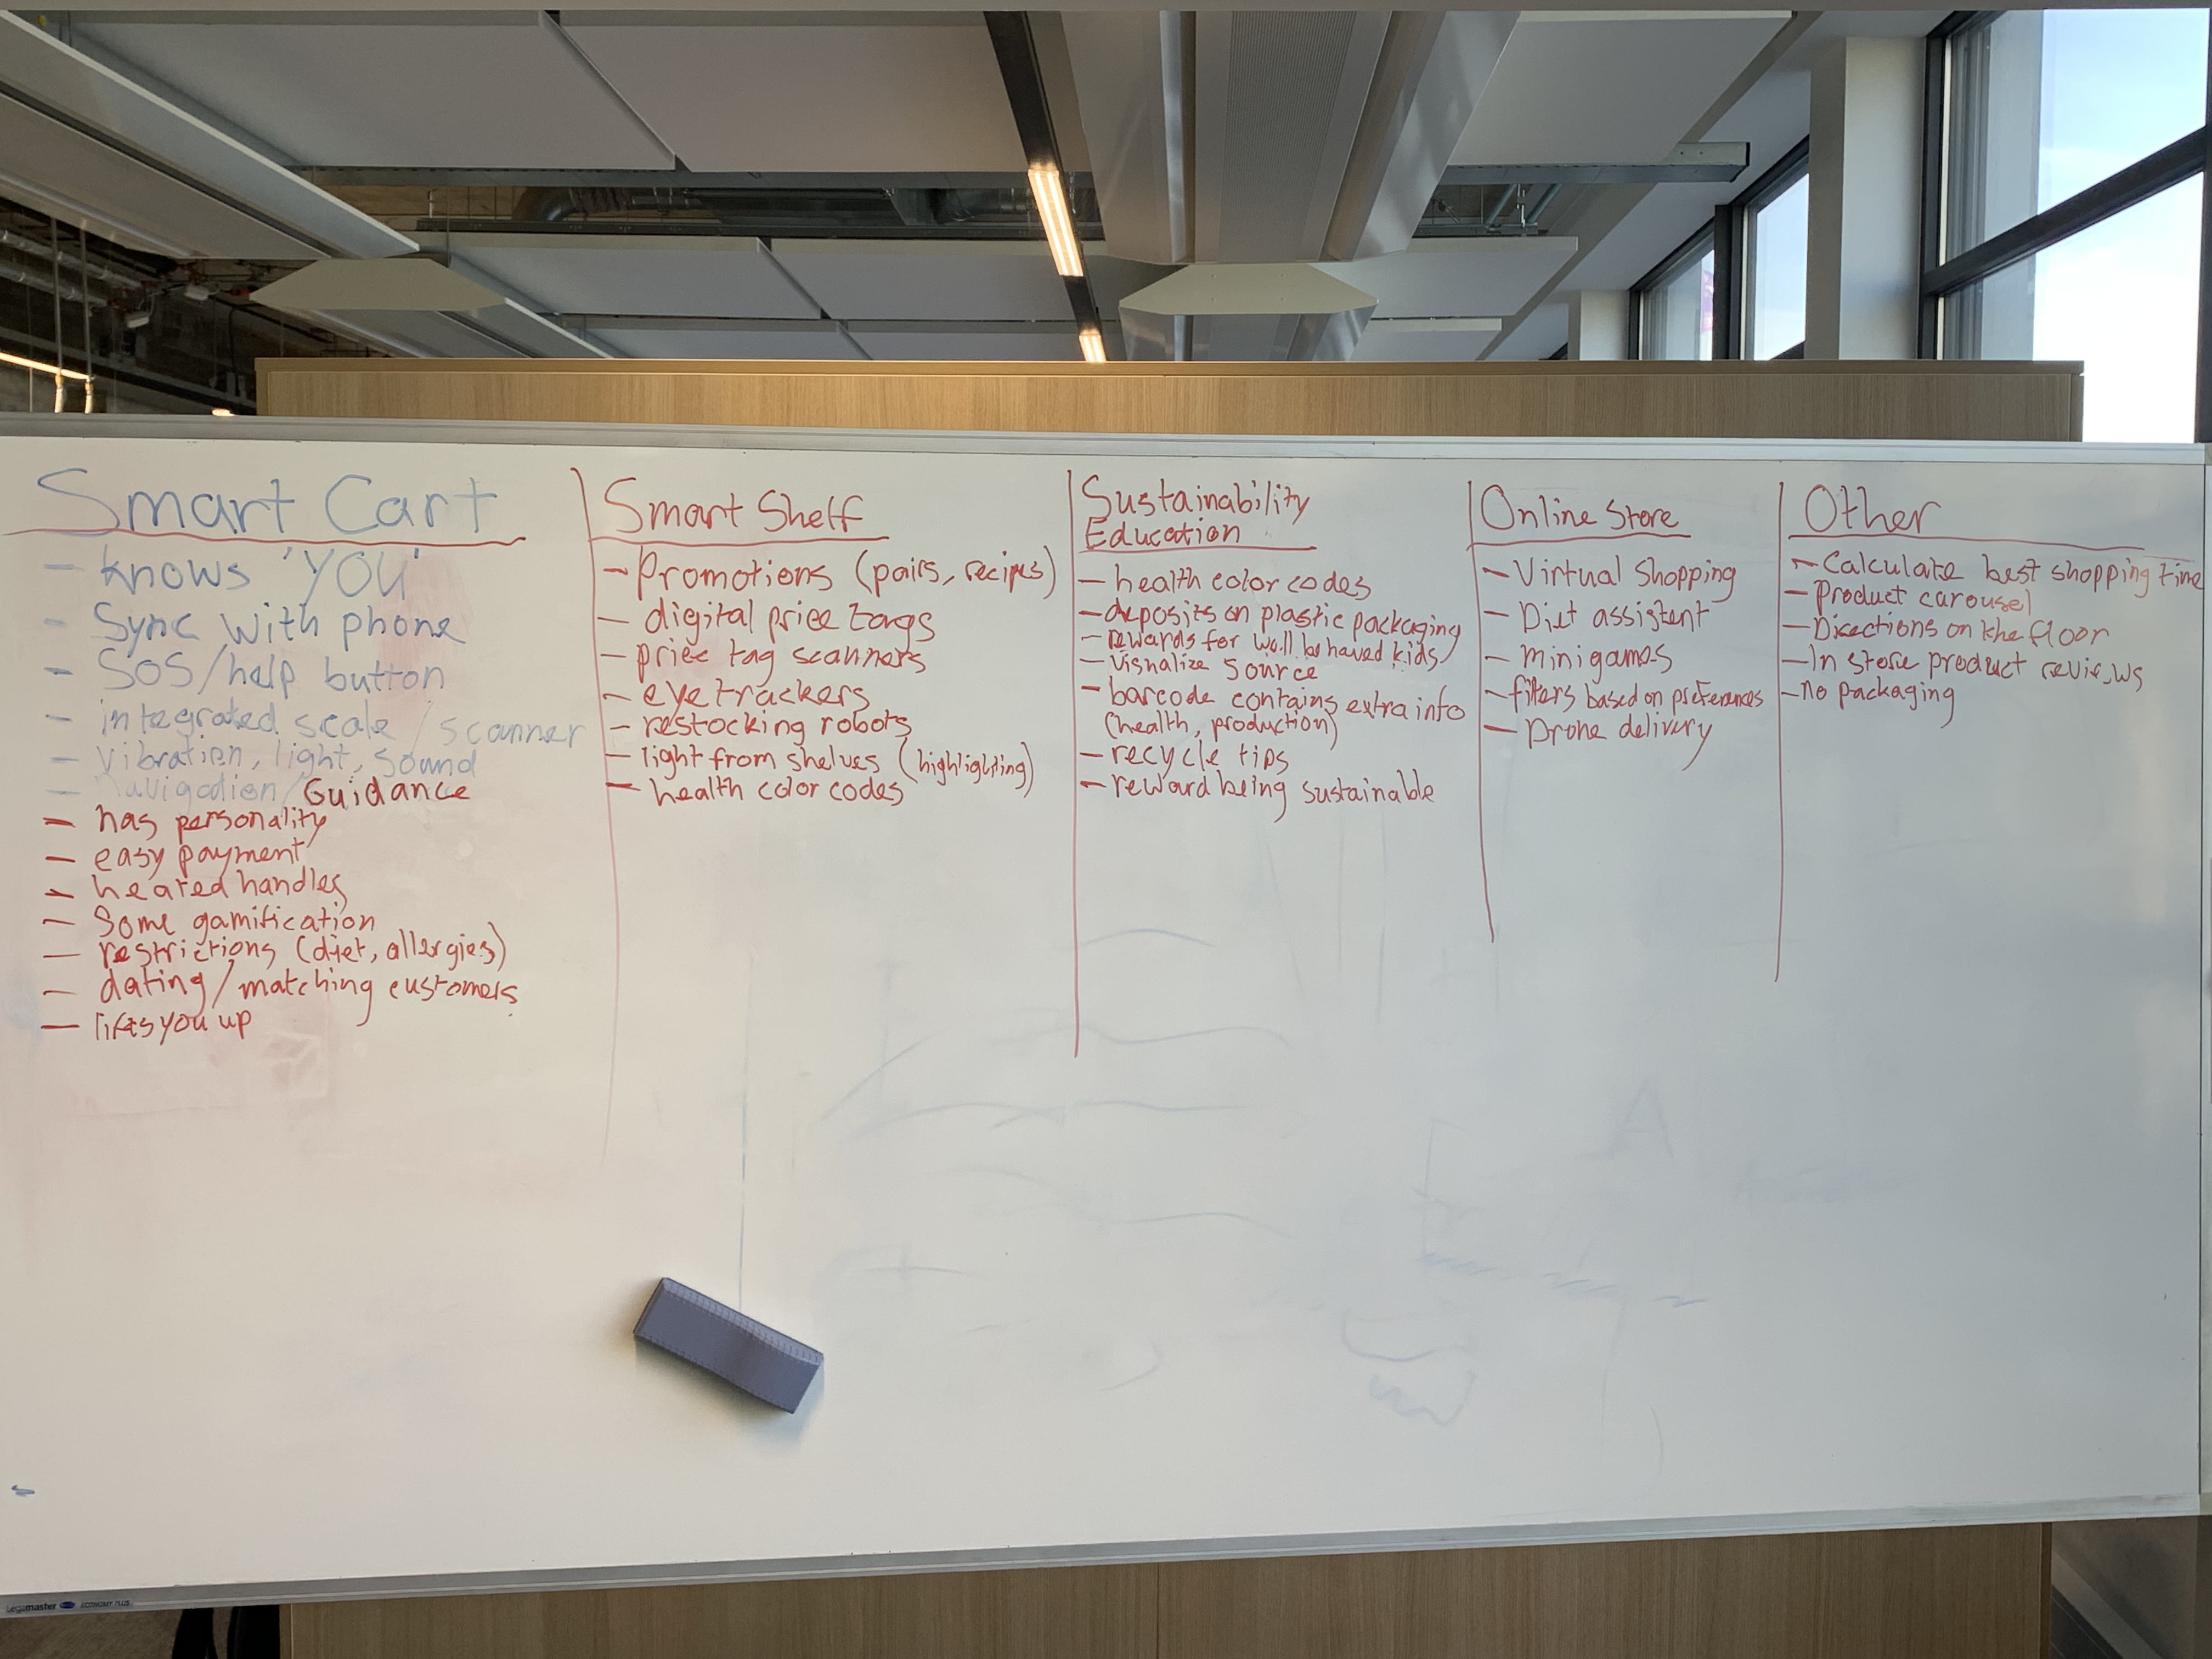 Smart Cart
- knows 'YOU'
- Sync with phone
- SOS/help button
- integrated scale / scanner
- Vibration, light, sound
- Navigation/Guidance
- has personality
- easy payment
- heated handles
- Some gamification
- restrictions (diet, allergies)
- dating/matching customers
- lifts you up
Smart Shelf
- Promotions (pairs, recipes)
- digital price tags
- price tag scanners
- eye trackers
- restocking robots
- light from shelves (highlighting)
- health color codes
Sustainability
Education
- health color codes
- deposits on plastic packaging
- rewards for well behaved kids
- visualize source
- barcode contains extra info
(health, production)
- recycle tips
- reward being sustainable
Online Store
- Virtual Shopping
- Diet assistent
- minigames
- filters based on preferences
- Drone delivery
Other
- Calculate best shopping time
- Product carousel
- Directions on the floor
- In store product reviews
- no packaging
A
Legamaster ECONOMY PLUS